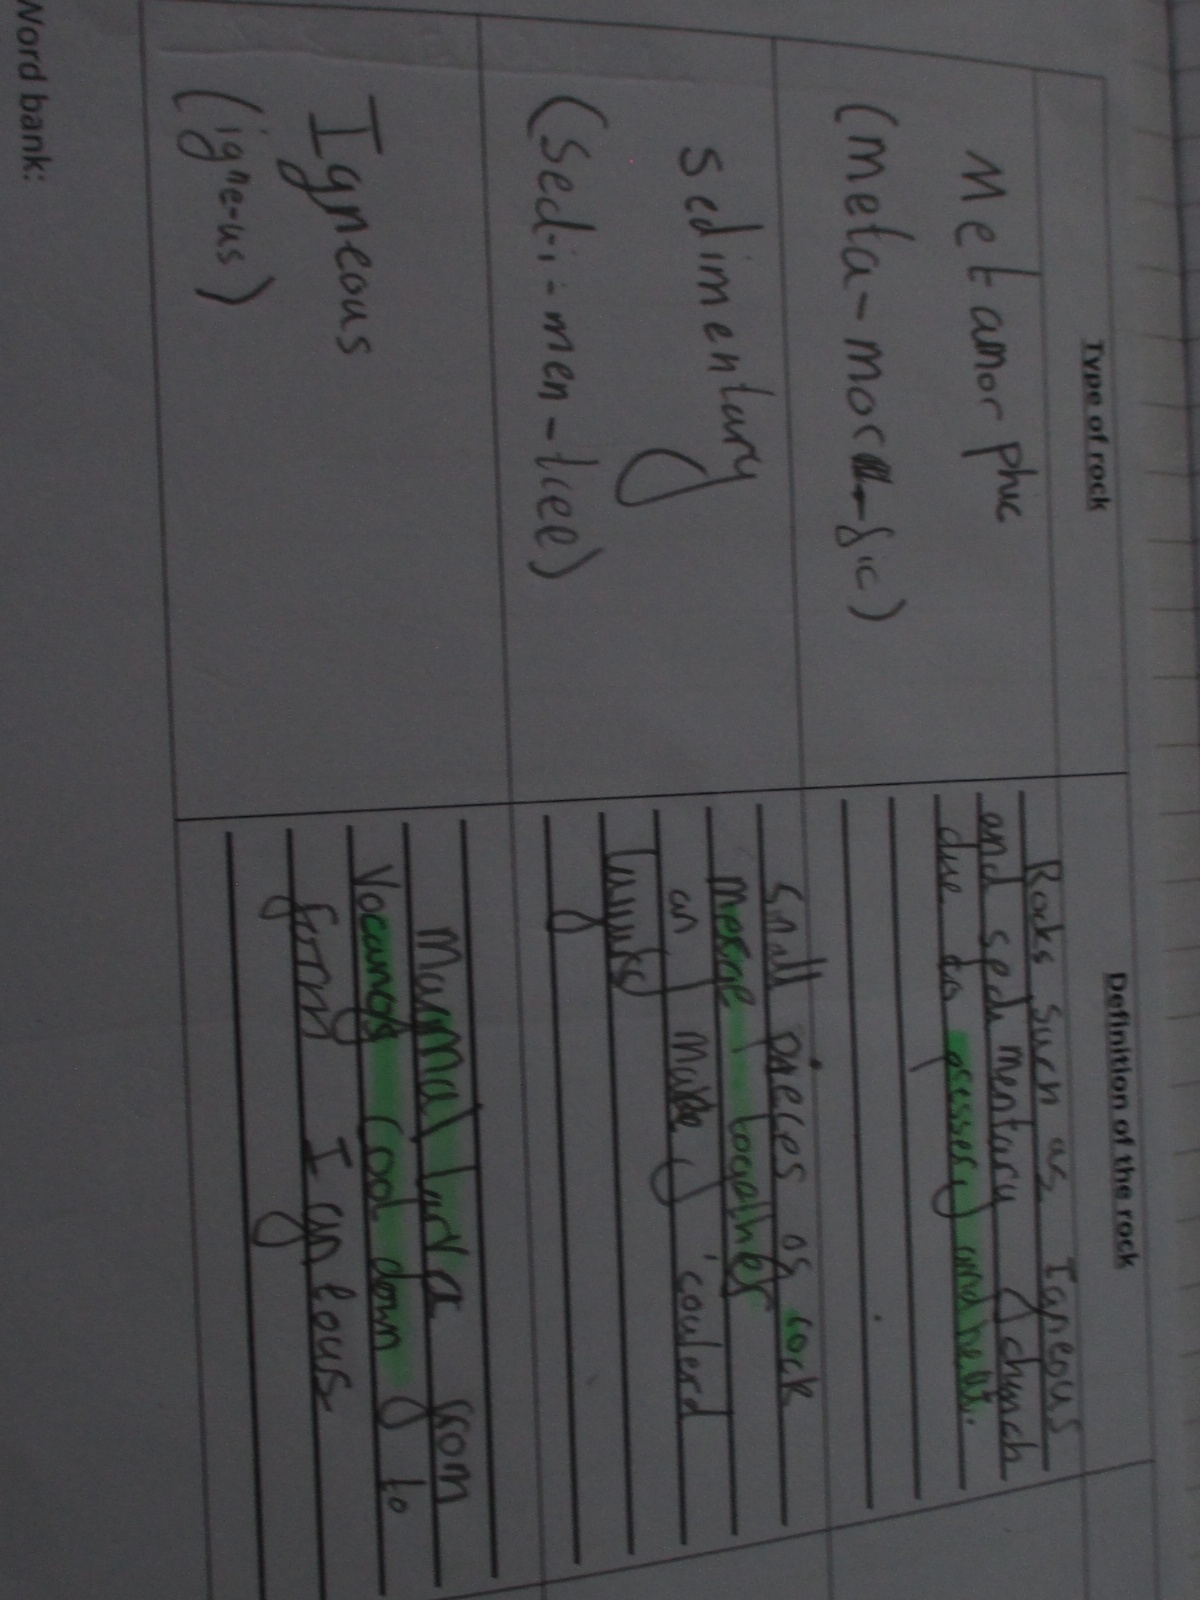 Type of rock
Definition of the rock
Metamorphic
(meta-mor-fic)
Rocks such as Igneous
and sedimentary
due to presser and heat.
sedimentary
(Sed-i-men-tree)
Small pieces of rock
together
an make
Igneous
(igne-us)
from
cool down to
form
Word bank: